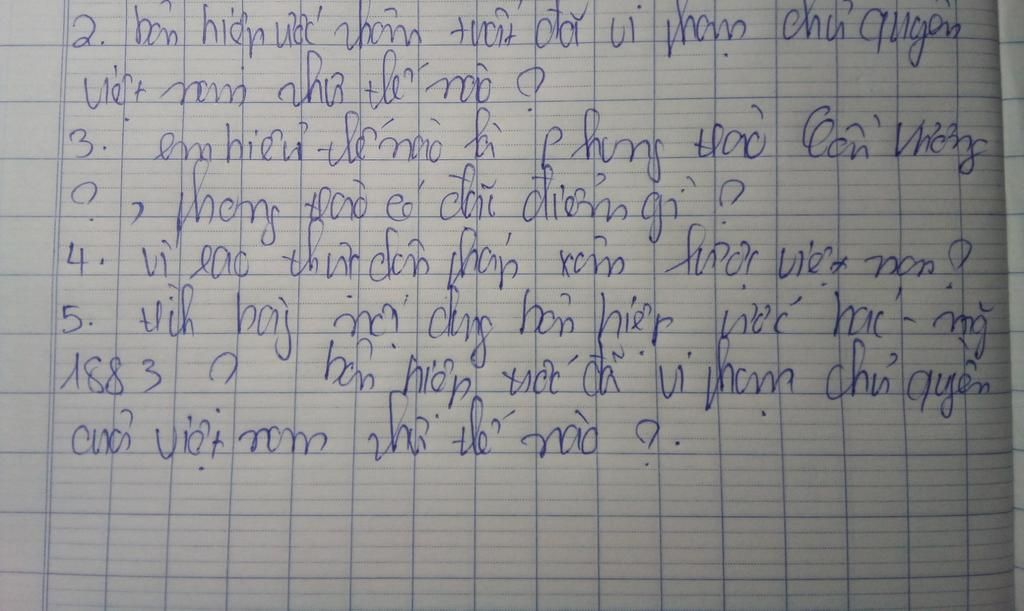 2. bản hiệp ước nhâm tuất đã vi phạm chủ quyền
việt nam như thế nào ?
3. em hiểu thế nào là phong trào Cần Vương
? , phong trào có đặc điểm gì ?
4. vì sao thực dân pháp xâm lược việt nam ?
5. trình bày nội dung bản hiệp ước hác - măng
1883 ? bản hiệp ước đã vi phạm chủ quyền
của việt nam như thế nào ?.